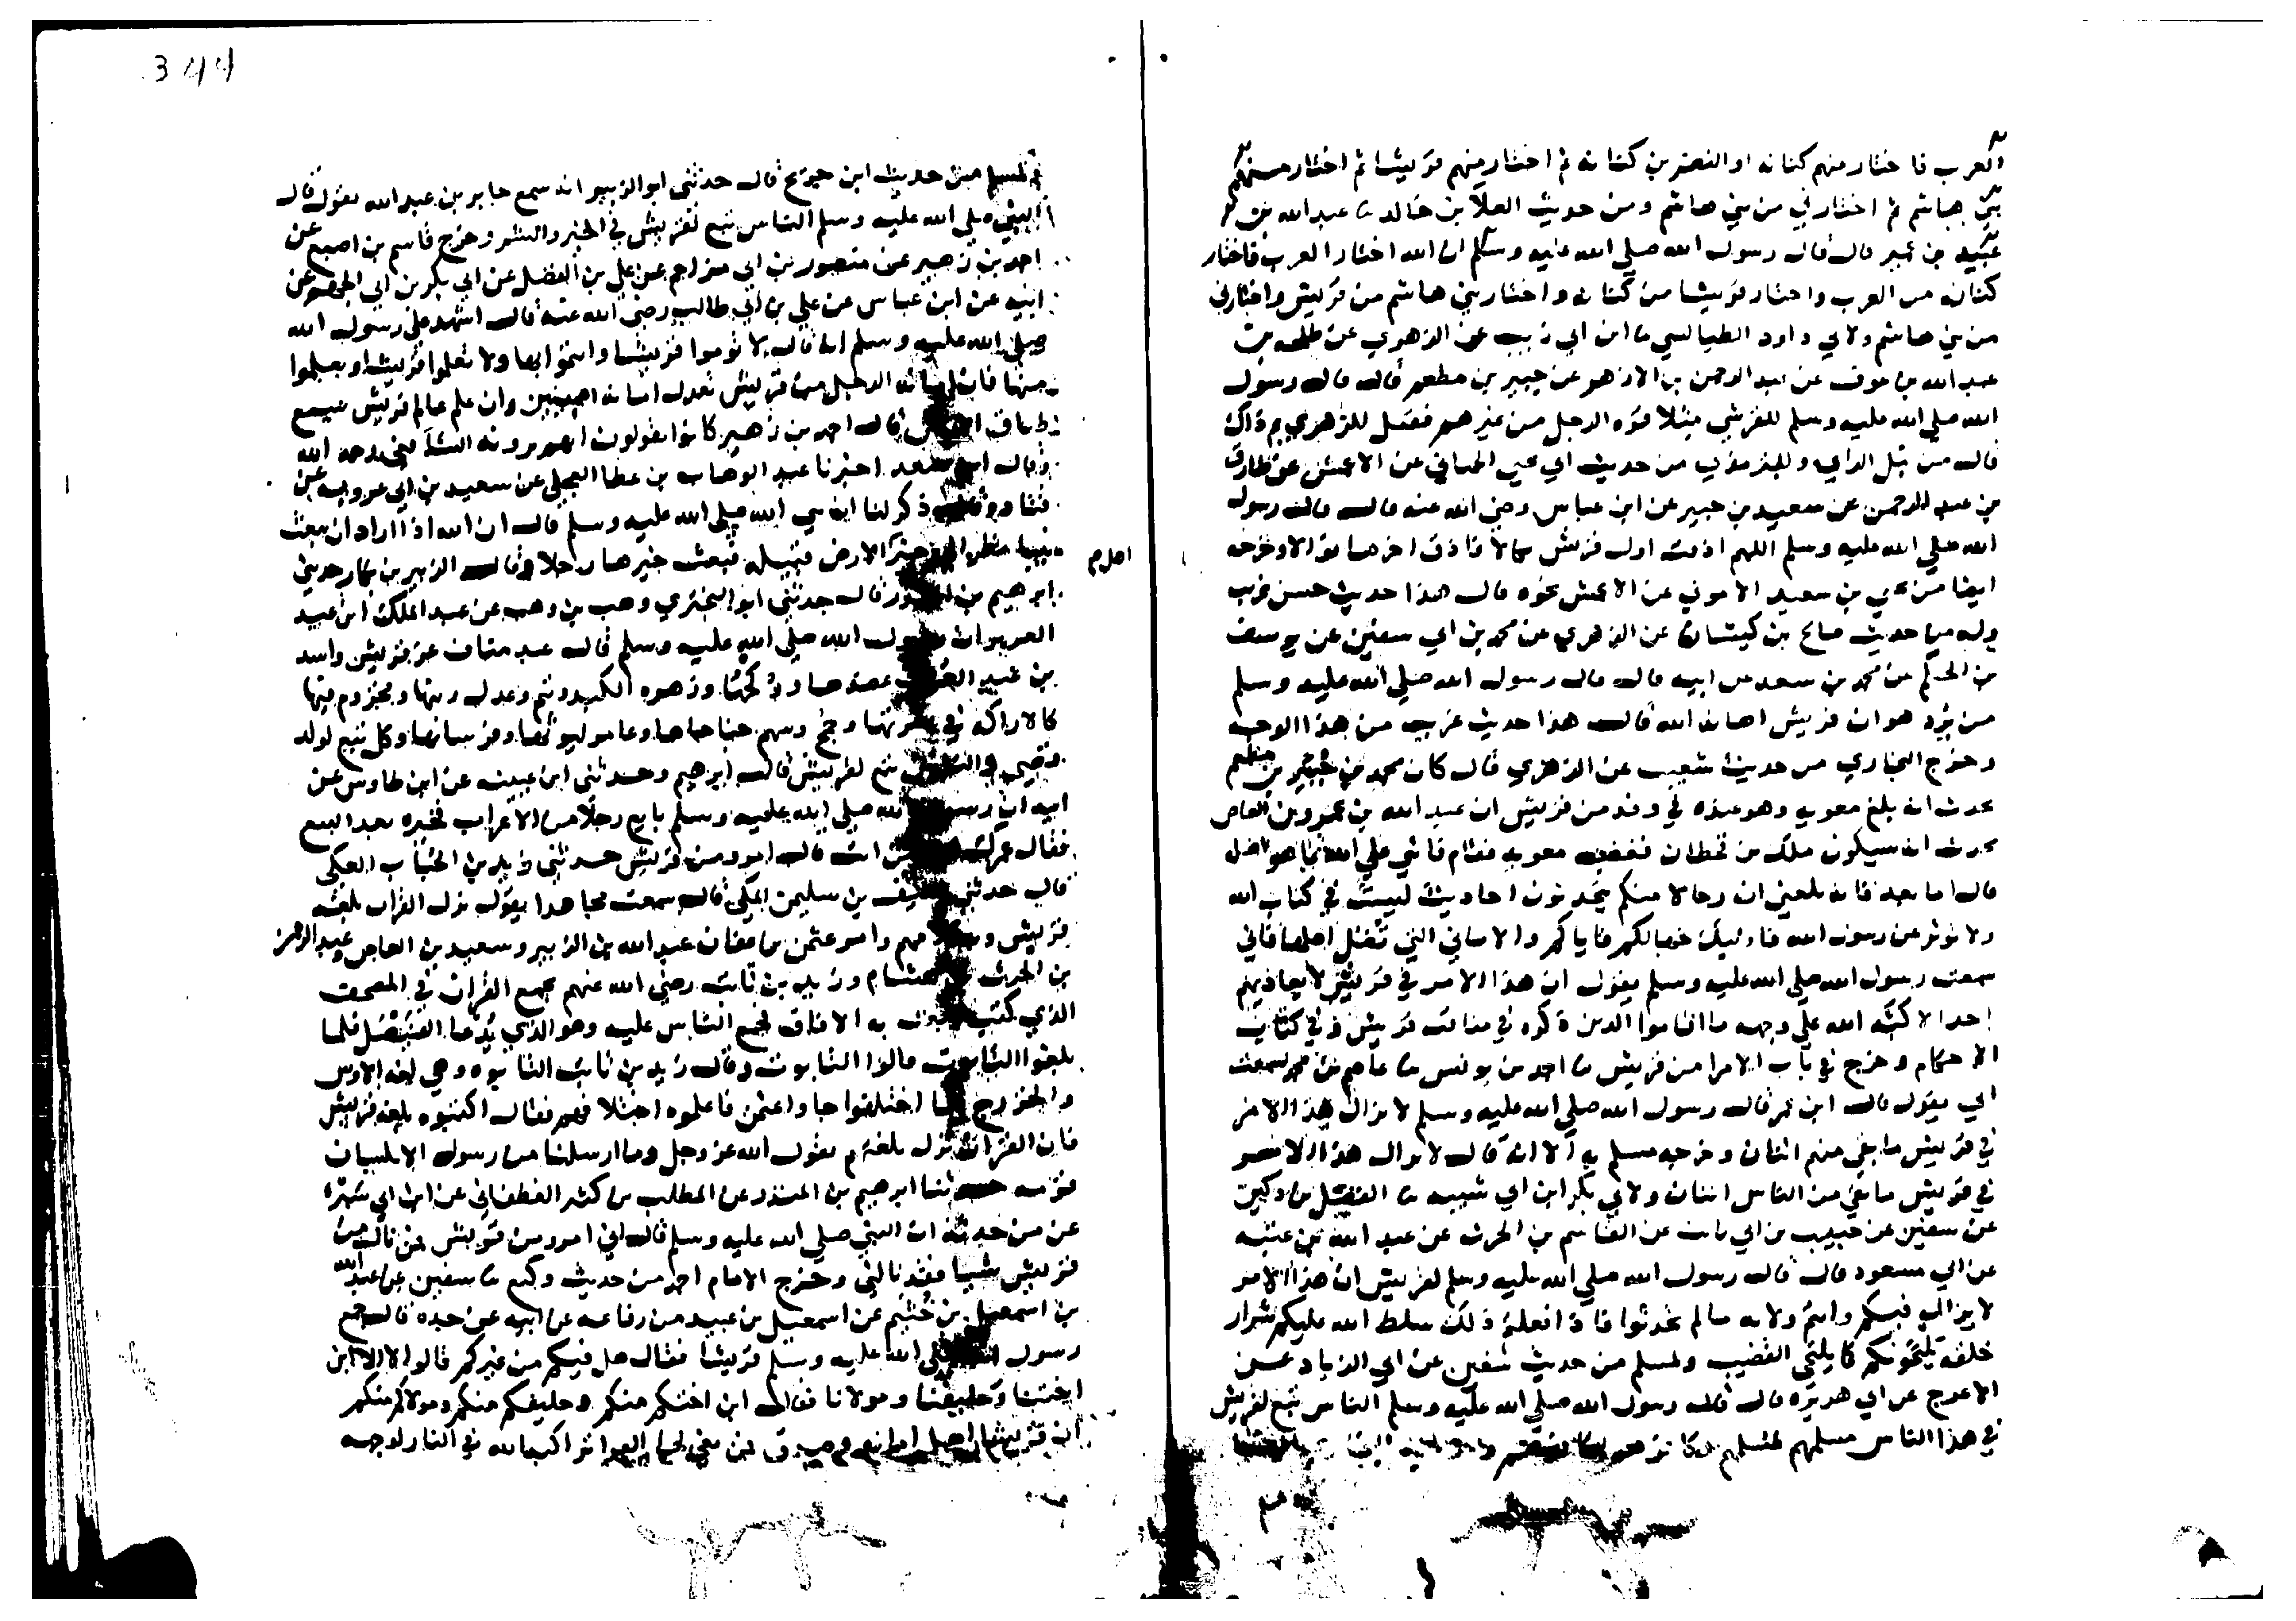 العرب فاختار منهم كنانه او النضر بن كنانه ثم اختار منهم قريشا ثم اختار منهم
بني هاشم ثم اختارني من بني هاشم ومن حديث العلا بن خالد نا عبد الله بن
عبيد بن عمير قال قال رسول الله صلي الله عليه وسلم ان الله اختار العرب فاختار
كنانه من العرب واختار قريشا من كنانه واختار بني هاشم من قريش واختارني
من بني هاشم ولابي داود الطيالسي نا ابن ابي ذيب عن الزهري عن طلحه بن
عبد الله بن عوف عن عبد الرحمن بن الازهر عن جبير بن مطعم قال قال رسول
الله صلي الله عليه وسلم للقرشي مثلا قوه الرجل من غيرهم فقيل للزهري بم ذاك
قال من نبل الراي وللترمذي من حديث ابي يحيي الحماني عن الاعمش عن طارق
بن عبد الرحمن عن سعيد بن جبير عن ابن عباس رضي الله عنه قال قال رسول
الله صلي الله عليه وسلم اللهم اذقت اول قريش نكالا فاذق اخرها نوالا وخرجه
ايضا من يحيي بن سعيد الاموي عن الاعمش نحوه قال هذا حديث حسن غريب
وله من حديث صالح بن كيسان عن الزهري عن محمد بن ابي سفين عن يوسف
بن الحكم عن محمد بن سعد عن ابيه قال قال رسول الله صلي الله عليه وسلم
من يرد هوان قريش اهانه الله قال هذا حديث غريب من هذا الوجه
وخرج البخاري من حديث شعيب عن الزهري قال كان محمد بن جبير بن مطعم
يحدث انه بلغ معويه وهو عنده في وفد من قريش ان عبد الله بن عمرو بن العاص
يحدث انه سيكون ملك من قحطان فغضب معويه فقام فاثني علي الله بما هو اهله
قال اما بعد فانه بلغني ان رجالا منكم يتحدثون احاديث ليست في كتاب الله
ولا توثر عن رسول الله فاوليك جهالكم فاياكم والاماني التي تضل اهلها فاني
سمعت رسول الله صلي الله عليه وسلم يقول ان هذا الامر في قريش لا يعاديهم
احد الا كبه الله علي وجهه ما اقاموا الدين ذكره في مناقب قريش وفي كتاب
الاحكام وخرج في باب الامرا من قريش نا احمد بن يونس نا عاصم بن محمد سمعت
ابي يقول قال ابن عمر قال رسول الله صلي الله عليه وسلم لا يزال هذا الامر
في قريش ما بقي منهم اثنان وخرجه مسلم به الا انه قال لا يزال هذا الامر
في قريش ما بقي من الناس اثنان ولابي بكر ابن ابي شيبه نا الفضل بن دكين
عن سفين عن حبيب بن ابي ثابت عن القاسم بن الحرث عن عبد الله بن عتبه
عن ابي مسعود قال قال رسول الله صلي الله عليه وسلم لقريش ان هذا الامر
لا يزال فيكم وانتم ولاته ما لم تحدثوا فاذا فعلتم ذلك سلط الله عليكم شرار
خلقه يلتحونكم كما يلتحي القضيب ولمسلم من حديث سفين عن ابي الزناد عن
الاعرج عن ابي هريره قال قال رسول الله صلي الله عليه وسلم الناس تبع لقريش
في هذا الناس مسلمهم لمسلمهم
ولمسلم من حديث ابن جريج قال حدثني ابو الزبير انه سمع جابر بن عبد الله يقول قال
النبي صلي الله عليه وسلم الناس تبع لقريش في الخير والشر وخرج قاسم بن اصبع عن
احمد بن زهير عن منصور بن ابي مزاحم عن علي بن الفضل عن ابي بكر بن ابي الجهم عن
ابيه عن ابن عباس عن علي بن ابي طالب رضي الله عنه قال اشهد علي رسول الله
صلي الله عليه وسلم انه قال لا توموا قريشا وايتموا بها ولا تعلموا قريشا وتعلموا
منها فان امانه الرجل من قريش تعدل امانه امينين وان علم عالم قريش يسع
طباق قال احمد بن زهير كانوا يقولون انهم يرونه الشافعي رحمه الله
وقال ابن سعد اخبرنا عبد الوهاب بن عطا العجلي عن سعيد بن ابي عروبه عن
قتاده قال ذكر لنا ان نبي الله صلي الله عليه وسلم قال ان الله اذا اراد ان يبعث
نبيا نظر الي خير اهل الارض قبيله فبعث خيرها رجلا وقال الزبير بن بكار حدثني
ابرهيم بن قال حدثني ابو البختري وهب بن وهب عن عبد الملك ابن عبد
العزيز ان رسول الله صلي الله عليه وسلم قال عبد مناف عز قريش واسد
بن عبد العزي عضدها وركنها وزهره الكبد وتيم وعدل رتها ومخزوم فيها
كالاراكه في نضرتها وجمح وسهم جناحاها وعامر ليوثها وفرسانها وكل تبع لولد
قصي والناس تبع لقريش قال ابرهيم وحدثني ابن عيينه عن ابن طاوس عن
ابيه ان رسول الله صلي الله عليه وسلم بايع رجلا من الاعراب فخيره بعد البيع
فقال عمرك ممن انت قال امرو من قريش حدثني زيد بن الحباب العكلي
قال حدثني سيف بن سليمن المكي قال سمعت مجاهدا يقول نزل القران بلغه
قريش وامر عثمن بن عفان عبد الله بن الزبير وسعيد بن العاص وعبد الرحمن
بن الحرث بن هشام وزيد بن ثابت رضي الله عنهم بجمع القران في المصحف
الذي كتب به الافاق فجمع الناس عليه وهو الذي يدعا الفيصل فلما
بلغوا التابوت قالوا التابوت وقال زيد بن ثابت التابوه وهي لغه الاوس
والخزرج فلما اختلفوا جاوا عثمن فاعلموه اختلافهم فقال اكتبوه بلغه قريش
فان القران نزل بلغتهم يقول الله عز وجل وما ارسلنا من رسول الا بلسان
قومه حدثنا ابرهيم بن المنذر عن المطلب بن كثير الغطفاني عن ابن ابي
عن من حدثه ان النبي صلي الله عليه وسلم قال اني امرو من قريش فمن نال من
قريش شيا فقد نالني وخرج الامام احمد من حديث وكيع نا سفين عن عبد الله
بن اسمعيل بن خثيم عن اسمعيل بن عبيد من رفاعه عن ابيه عن جده قال جمع
رسول الله صلي الله عليه وسلم قريشا فقال هل فيكم من غيركم قالوا لا الا ابن
اختنا وحليفنا ومولانا فقال ابن اختكم منكم وحليفكم منكم ومولاكم منكم
ان قريشا اهل امانه وصدق فمن بغي لها العواثر اكبه الله في النار لوجهه